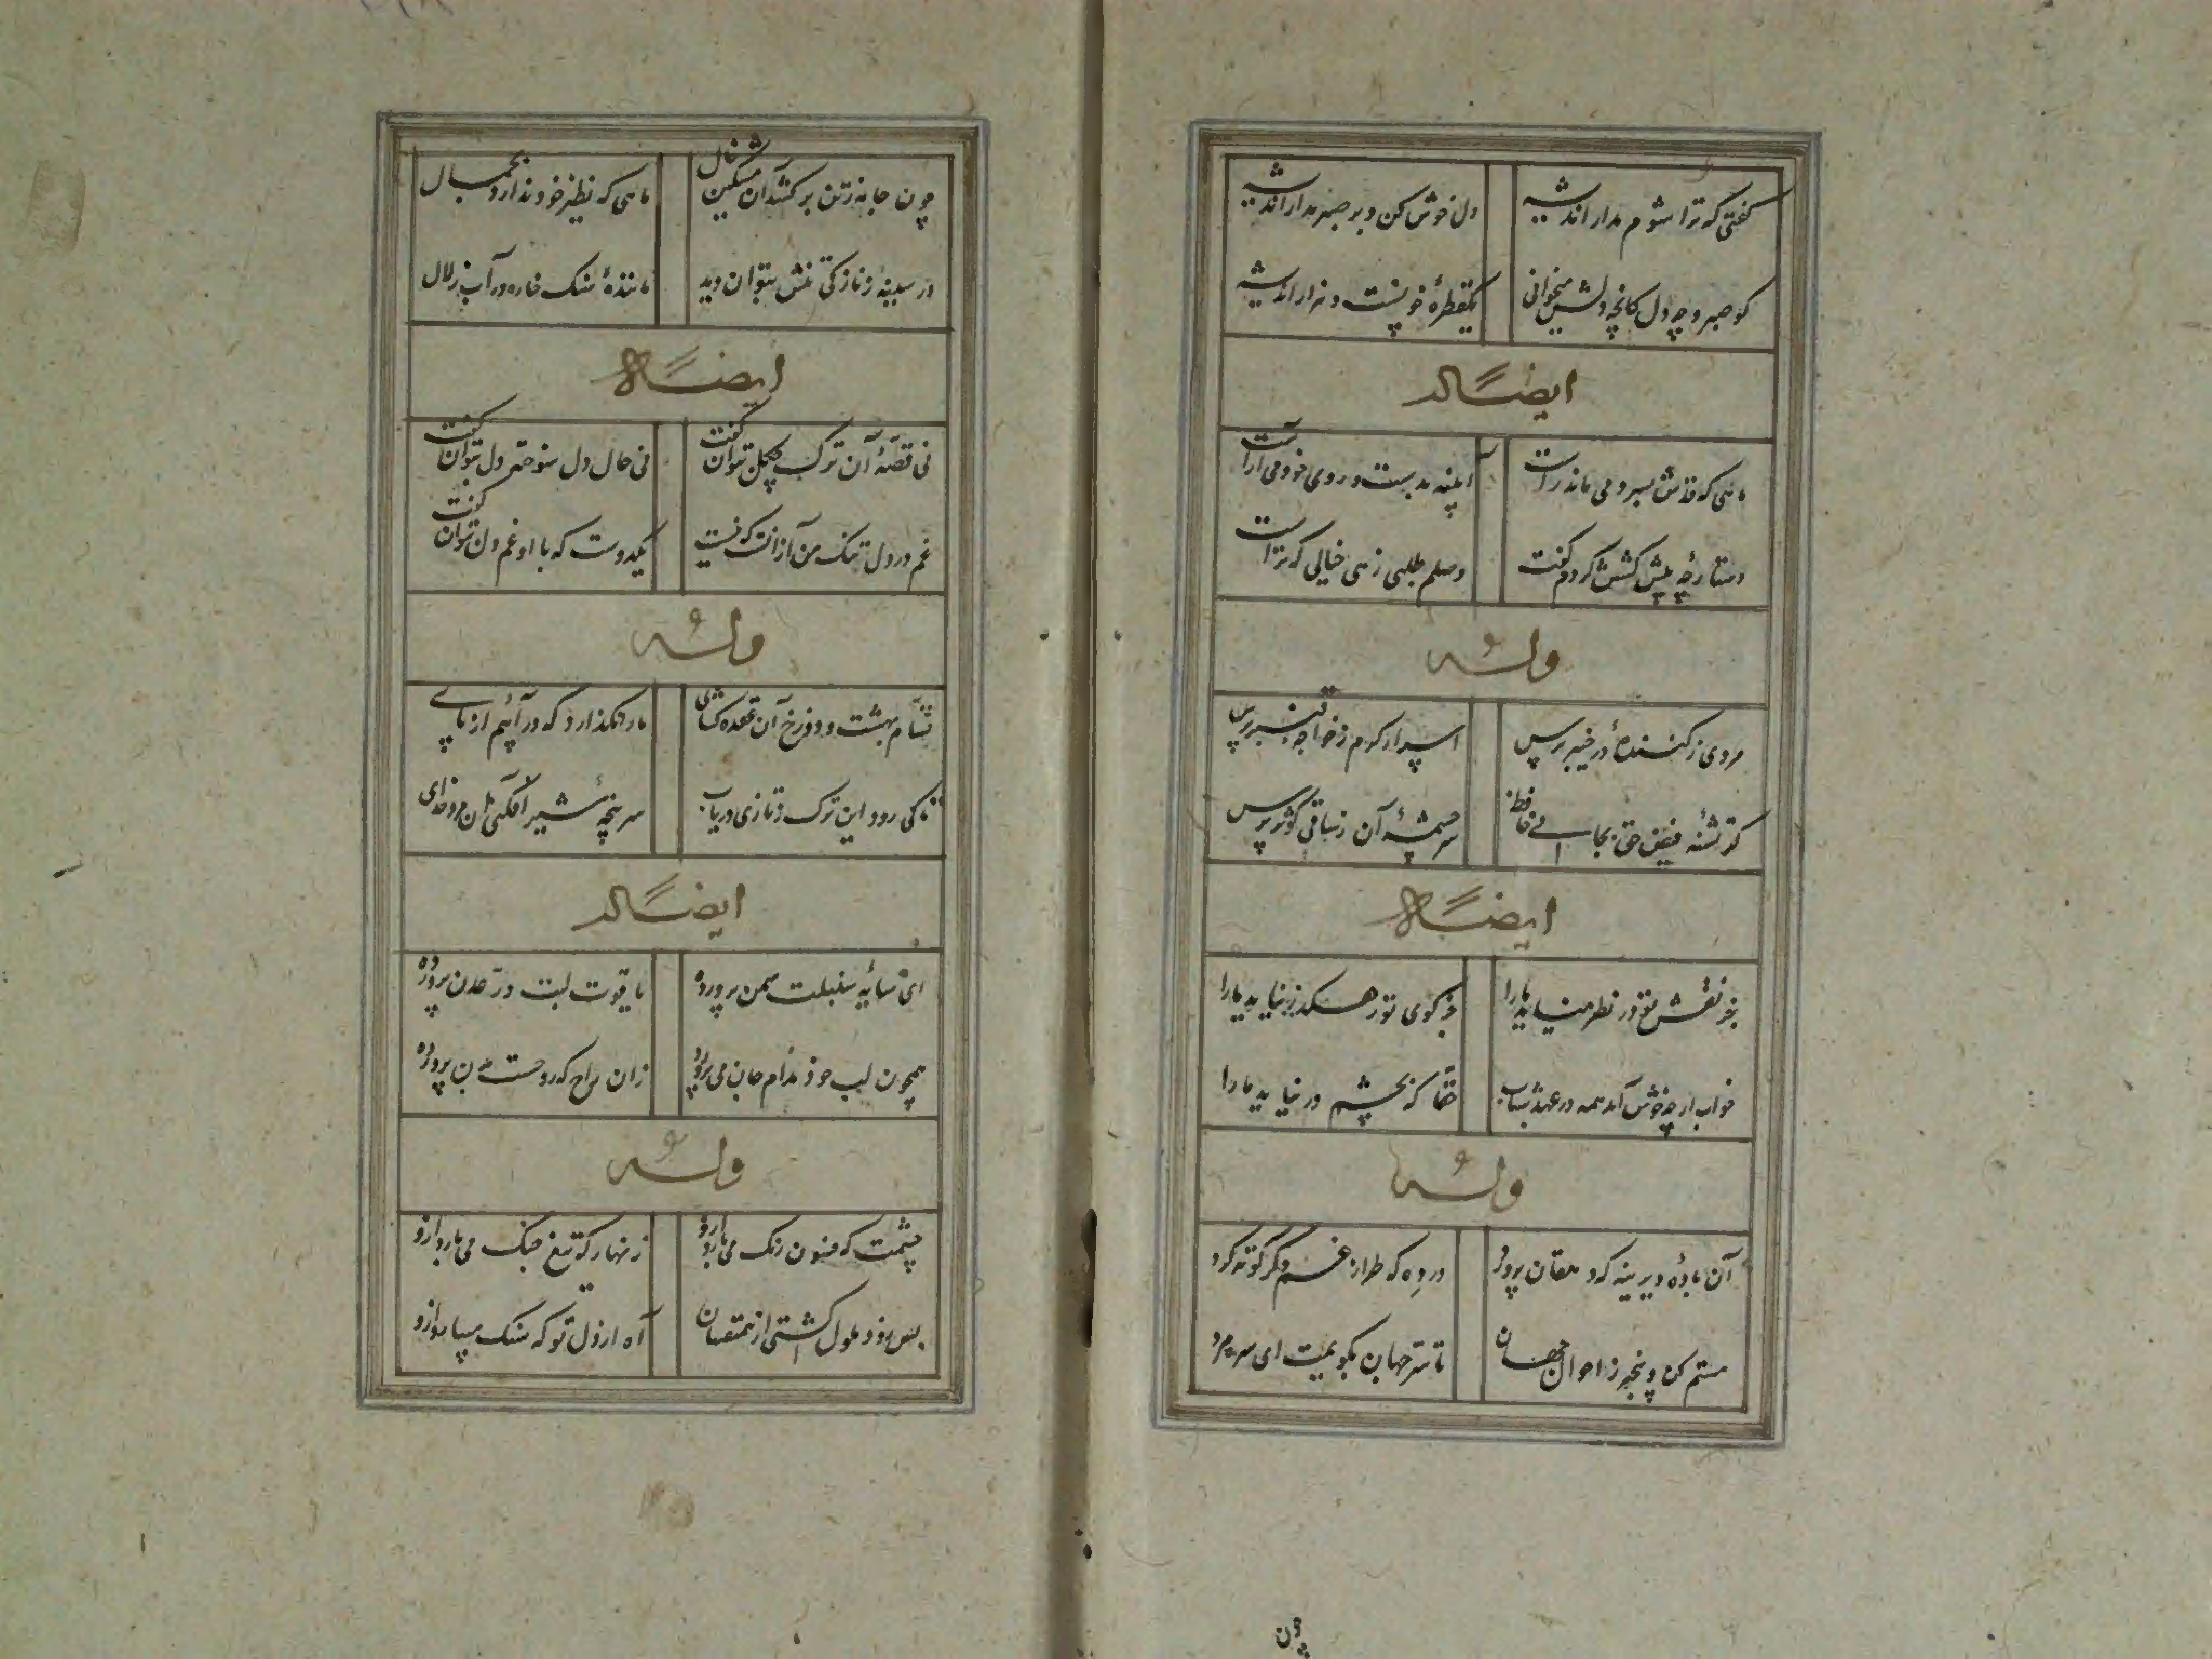 گفتی که ترا شوم مدار اندیشه دل خوش کن و بر صبر مدار اندیشه
کو صبر و چه دل کانچه دلش میخوانی یکقطرهٔ خونست و هزار اندیشه
ایضاً له
ماهی که قدش بسرو می ماند راست آیینه بدست و روی خود می آراست
دستارچه پیش کشش کردم گفت وصلم طلبی زهی خیالی که تراست
وله
مردی ز کنندهٔ در خیبر پرس اسرار کرم ز خواجه قنبر پرس
گر تشنه فیض حق بجانی حافظ سرچشمهٔ آن ز ساقی کوثر پرس
ایضاً له
جز نقش تو در نظر نیاید ما را جز کوی تو رهگذر نیاید ما را
خواب ار چه خوش آمد همه در عهد شباب حقا که بچشم در نیاید ما را
وله
آن بادهٔ دیرینه که دهقان پرورد در ده که طراز غم دگر گونه کرد
مستم کن و بیخبر ز احوال جهان تا سر جهان بگویمت ای سره مرد
چون
چون جامه ز تن برکشد آن مشکین خال ماهی که نظیر خود ندارد بجمال
در سینه ز نازکی تنش بتوان دید مانندهٔ سنک خاره در آب زلال
ایضاً له
نی قصهٔ آن ترک چگل بتوان گفت نی حال دل سوخته دل بتوان گفت
غم در دل تنک من از آنست که نیست یکدوست که با او غم دل بتوان گفت
وله
قسام بهشت و دوزخ آن عقده کشای ما را نگذارد که در آییم از پای
تا کی رود این ترک و تازی دریاب سر پنجهٔ شیر افکن ای خدای
ایضاً له
ای سایهٔ سنبلت سمن پرورده یاقوت لبت در عدن پرورده
همچون لب خود مدام جان می پرور زان راح که روحست ببن پرورده
وله
چشمت که فسون رنک می بارد ازو زنهار که تیغ جنک می بارد ازو
بس زود ملول گشتی از همنفسان آه از دل تو که سنک میبارد ازو